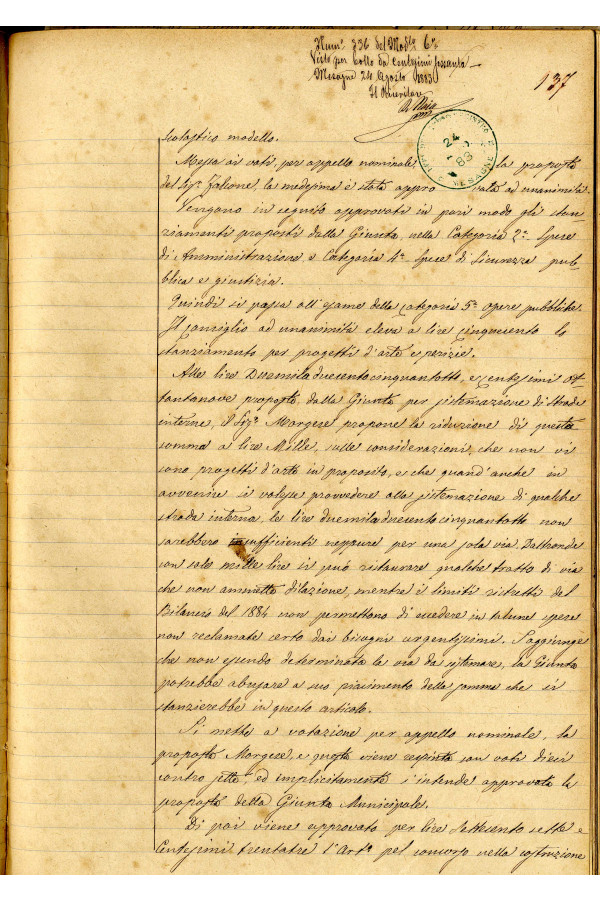 Num.º 336 del Mod.º 6º
Visto per bollo da Centesimi sessanta
Mesagne 24 Agosto 1883
Il Ricevitore
137
24
83
MESAGNE
scolastico modello.
Messa ai voti, per appello nominale la proposta
del Sig.r Falcone, la medesima è stata approvata ad unanimità.
Vengono in seguito approvati in pari modo gli stan
ziamenti proposti dalla Giunta, nella Categoria 2ª Spese
di Amministrazione, e Categoria 4ª Spese di Sicurezza pub-
blica e giustizia.
Quindi si passa all'esame della categoria 5ª opere pubbliche.
Il Consiglio ad unanimità eleva a lire cinquecento lo
stanziamento per progetti d'arte e perizie.
Alle lire Duemiladuecentocinquantotto, e centesimi ot-
tantanove proposte dalla Giunta per sistemazione di strade
interne, il Sig.r Morgese propone la riduzione di questa
somma a lire Mille, sulle considerazioni, che non vi
sono progetti d'arte in proposito, e che quand'anche in
avvenire si volesse provvedere alla sistemazione di qualche
strada interna, le lire duemiladuecentocinquantotto non
sarebbero sufficienti neppure per una sola via. Daltronde
con sole mille lire si può ristaurare qualche tratto di via
che non ammette dilazione, mentre i limiti ristretti del
Bilancio del 1884 non permettono di eccedere in talune spese
non reclamate certo dai bisogni urgentissimi. Soggiunge
che non essendo determinata la via da sistemare, la Giunta
potrebbe abusare a suo piacimento della somma che si
stanzierebbe in questo articolo.
Si mette a votazione per appello nominale, la
proposta Morgese, e questa viene respinta con voti dieci
contro sette, ed implicitamente s'intende approvata la
proposta della Giunta Municipale.
Di poi viene approvato per lire Settecento sette e
Centesimi trentatre l'Art.º pel concorso nella costruzione